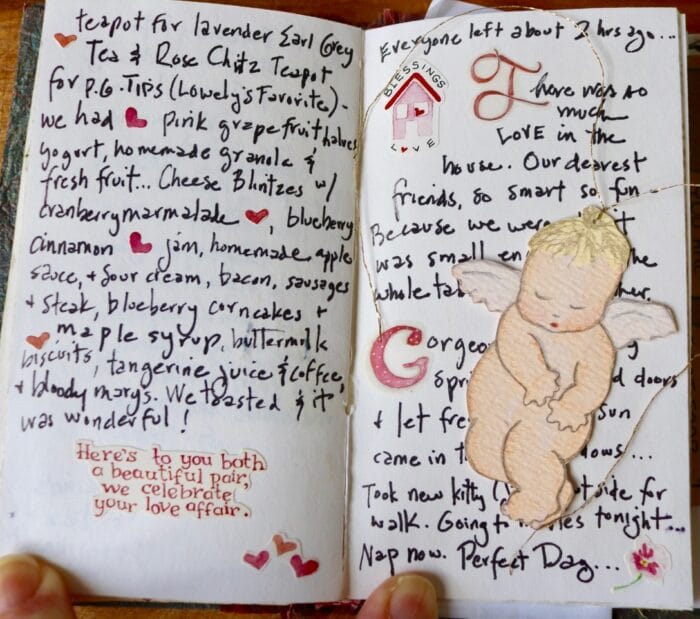 teapot for lavender Earl Grey
Tea & Rose Chitz Teapot
for P.G. Tips (Lowely's Favorite) -
we had pink grapefruit halves,
yogurt, homemade granola &
fresh fruit... Cheese Blintzes w/
cranberry marmalade, blueberry
cinnamon jam, homemade apple
sauce, + sour cream, bacon, sausages
+ steak, blueberry corncakes +
maple syrup, buttermilk
biscuits, tangerine juice & coffee,
+ bloody marys. We toasted & it
was wonderful!
Here's to you both
a beautiful pair,
we celebrate
your love affair.
Everyone left about 2 hrs ago...
BLESSINGS
LOVE
There was so
much
LOVE in the
house. Our dearest
friends, so smart so fun
Because we were
was small
whole
Gorgeo
d doors
+ let fre Sun
came in
Took new kitty for
walk. Going t tonight...
Nap now. Perfect Day...